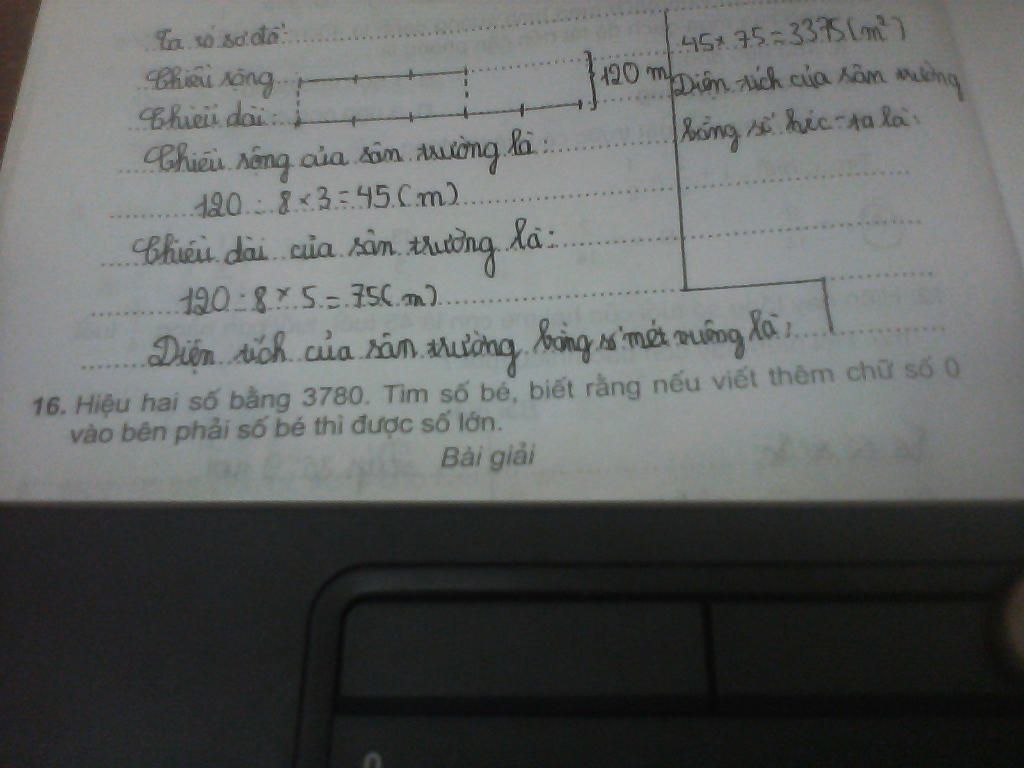 Ta có sơ đồ:
Chiều rộng
120 m
Chiều dài:
Chiều rộng của sân trường là:
120 : 8 × 3 = 45 (m)
Chiều dài của sân trường là:
120 : 8 × 5 = 75 (m)
Diện tích của sân trường bằng số mét vuông là:
45 × 75 = 3375 (m²)
Diện tích của sân trường
bằng số héc-ta là:
16. Hiệu hai số bằng 3780. Tìm số bé, biết rằng nếu viết thêm chữ số 0
vào bên phải số bé thì được số lớn.
Bài giải